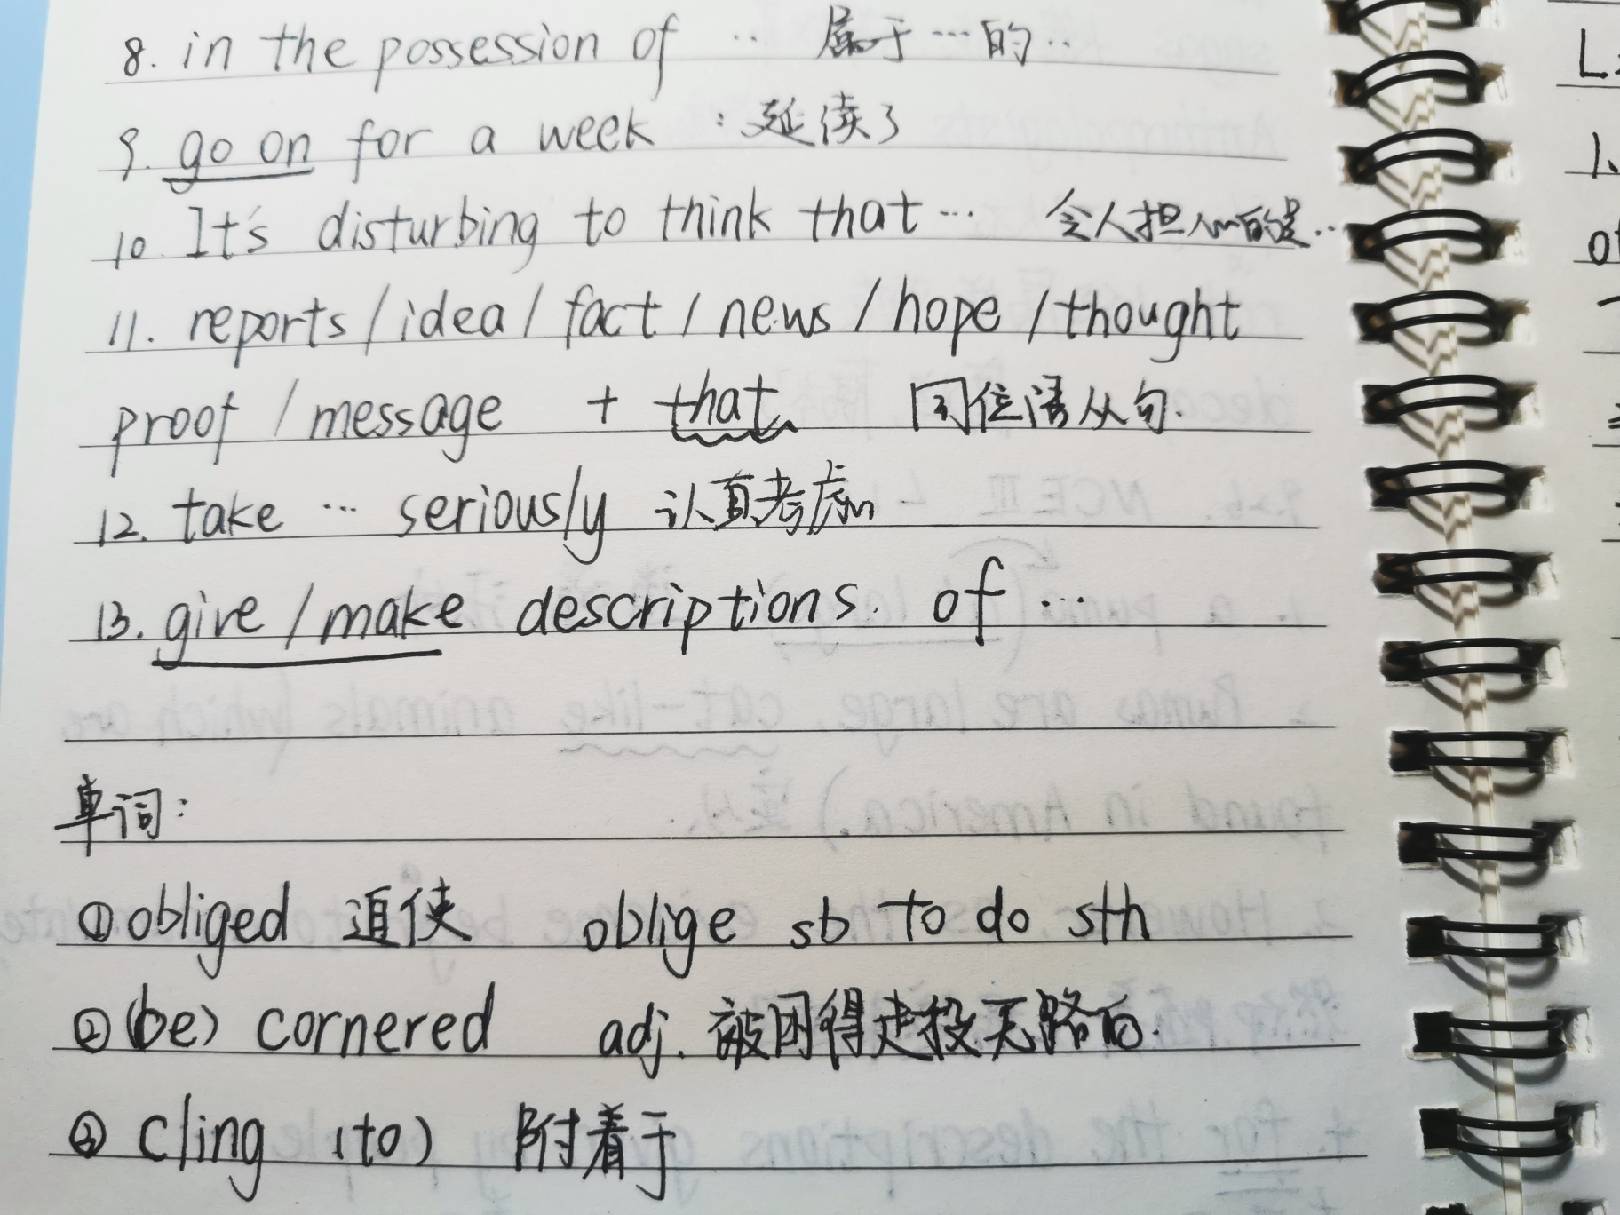 8. in the possession of ‥ 属于…的‥
9. go on for a week : 延续了
10. It's disturbing to think that … 令人担心的是…
11. reports / idea / fact / news / hope / thought
proof / message + that 同位语从句.
12. take … seriously 认真考虑
13. give / make descriptions. of …
单词:
① obliged 迫使 oblige sb to do sth
② (be) cornered adj. 被困得走投无路的.
③ cling (to) 附着于